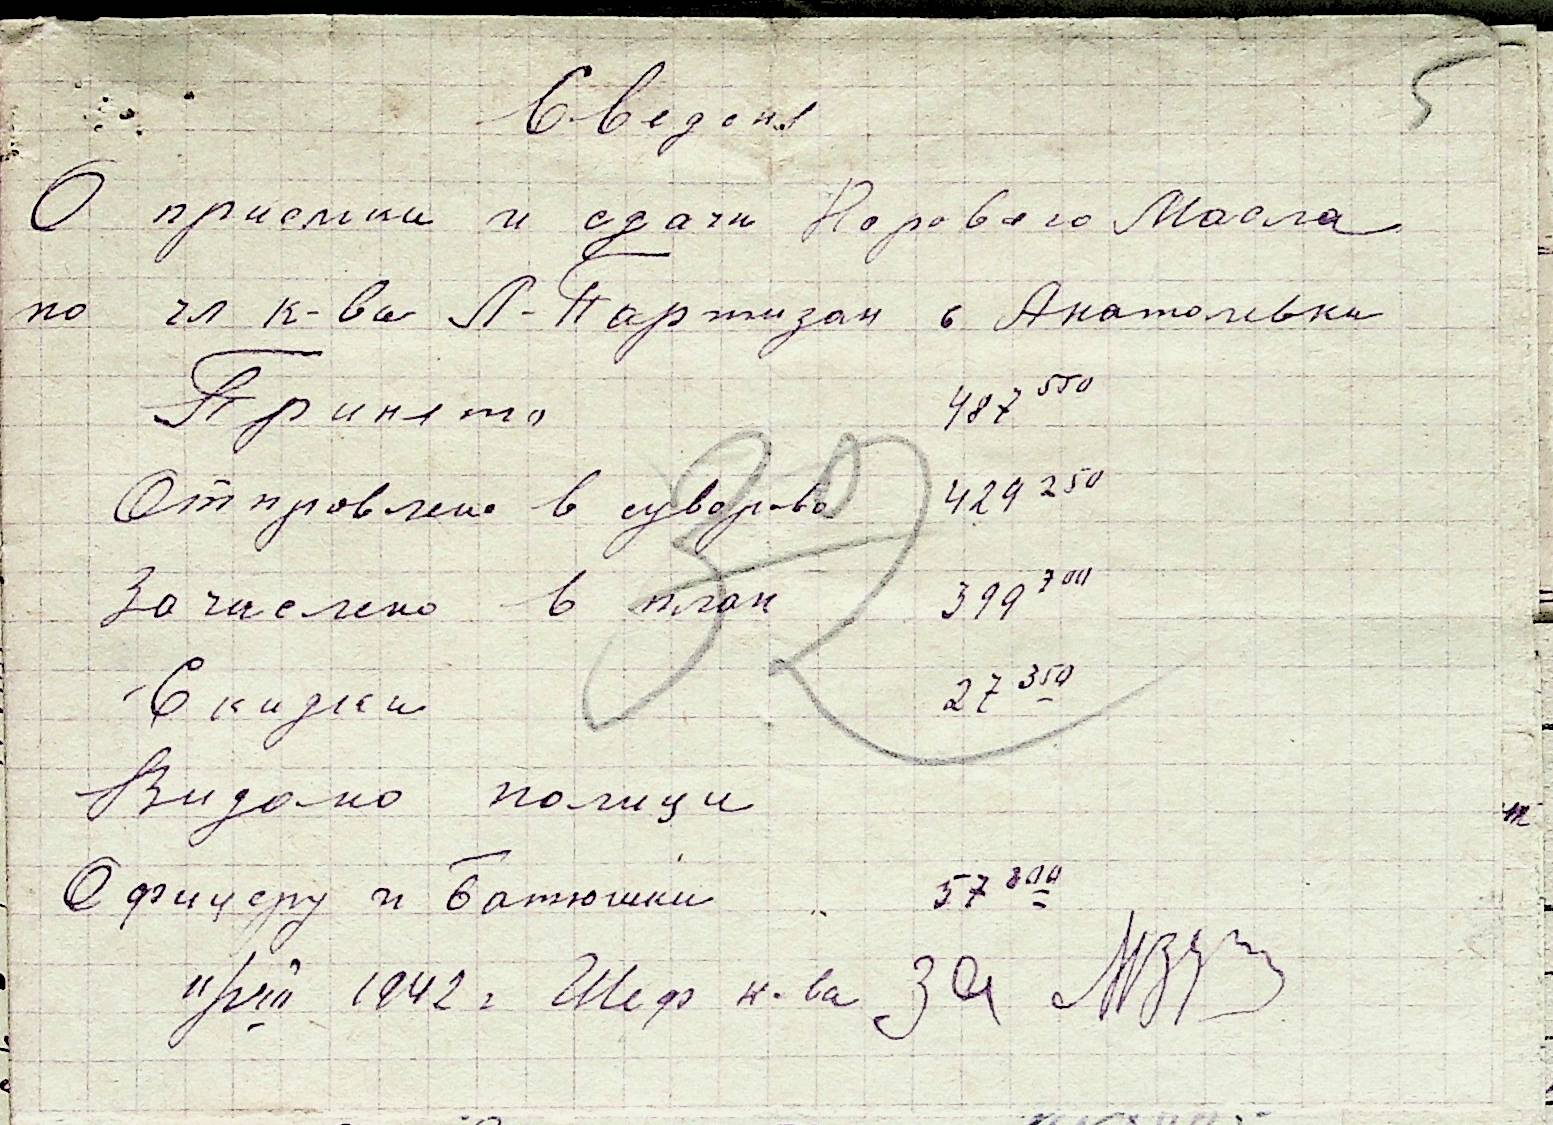 5
Сведения
О приемки и сдачи Коровяго Масла
по чл к-ва Л-Партизан с Анатолевки
Принято 487 550
Отправлено в суворово 429 250
Зачислено в план 399 700
Скидки 27 350
Видано полиции
Офицеру и Батюшки 57 800
1942 г Шеф к-ва За
32